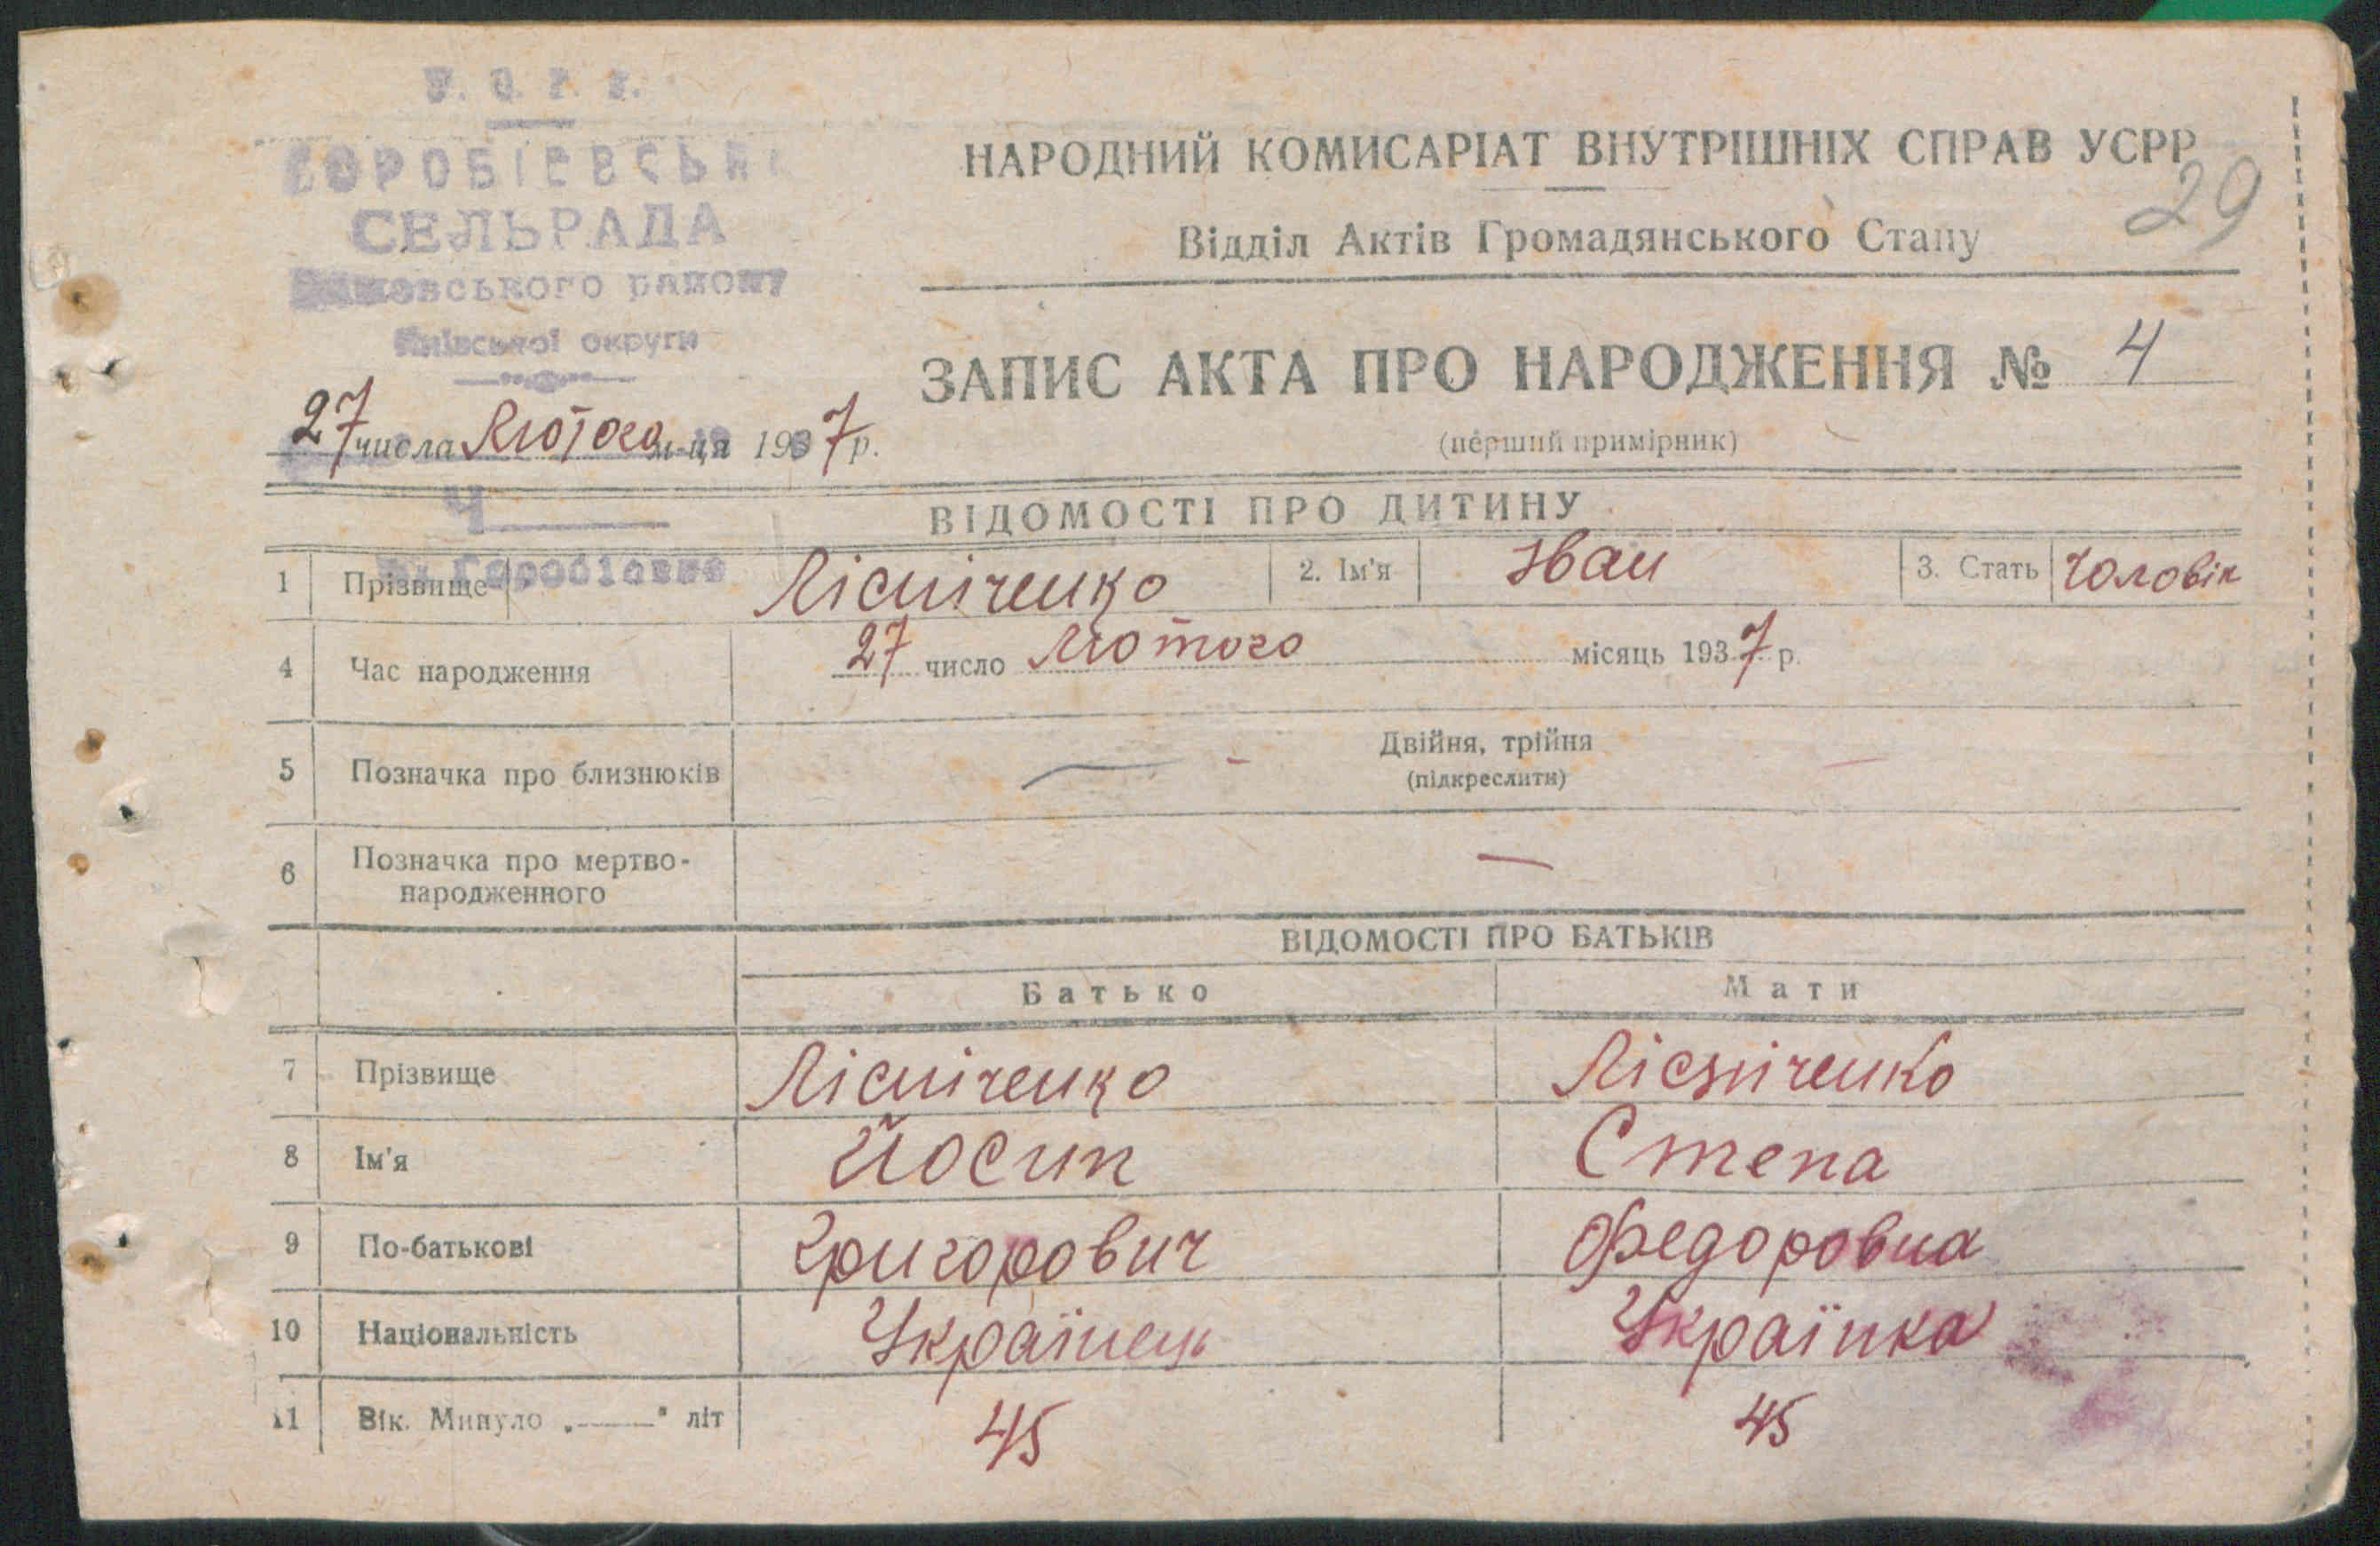 СЕЛЬРАДА
району
Київської округи
27 числа Лютого м-ця 1937 р.
Ч
НАРОДНИЙ КОМИСАРІАТ ВНУТРІШНІХ СПРАВ УСРР
29
Відділ Актів Громадянського Стану
ЗАПИС АКТА ПРО НАРОДЖЕННЯ № 4
(перший примірник)
ВІДОМОСТІ ПРО ДИТИНУ
1 Прізвище Лісніченко 2. Ім'я Іван 3. Стать Чоловік
4 Час народження 27 число Лютого місяць 1937 р.
5 Позначка про близнюків Двійня, трійня
(підкреслити)
6 Позначка про мертво-
народженного
ВІДОМОСТІ ПРО БАТЬКІВ
Батько Мати
7 Прізвище Лісніченко Лісніченко
8 Ім'я Йосип Степа
9 По-батькові Григорович Федоровна
10 Національність Українець Українка
11 Вік. Минуло „——" літ 45 45